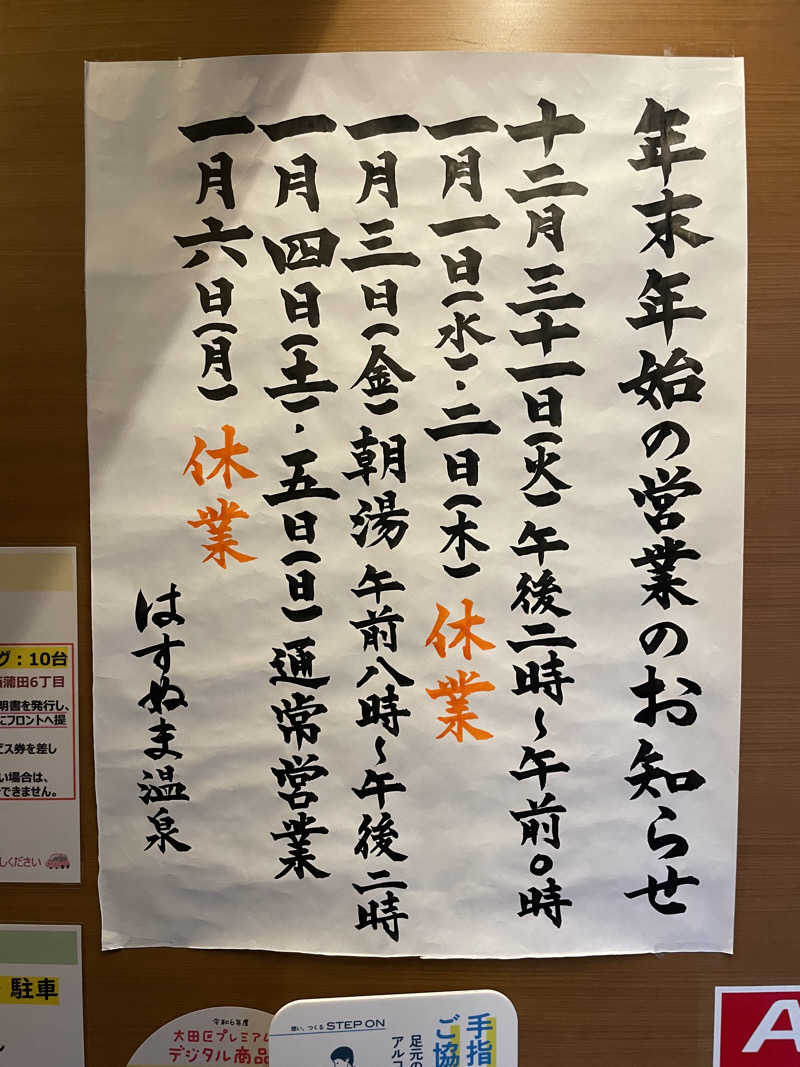 年末年始の営業のお知らせ
十二月三十一日(火)午後二時～午前0時
一月一日(水)・二日(木) 休業
一月三日(金) 朝湯 午前八時～午後二時
一月四日(土)・五日(日) 通常営業
一月六日(月) 休業
はすぬま温泉
グ:10台
蒲田6丁目
明書を発行し、
にフロントへ提
ビス券を差し
い場合は、
できません。
しください
駐車
令和6年度
大田区プレミアム
デジタル商品
想い、つくる STEP ON
足元の
アルコ
手指
ご協
A